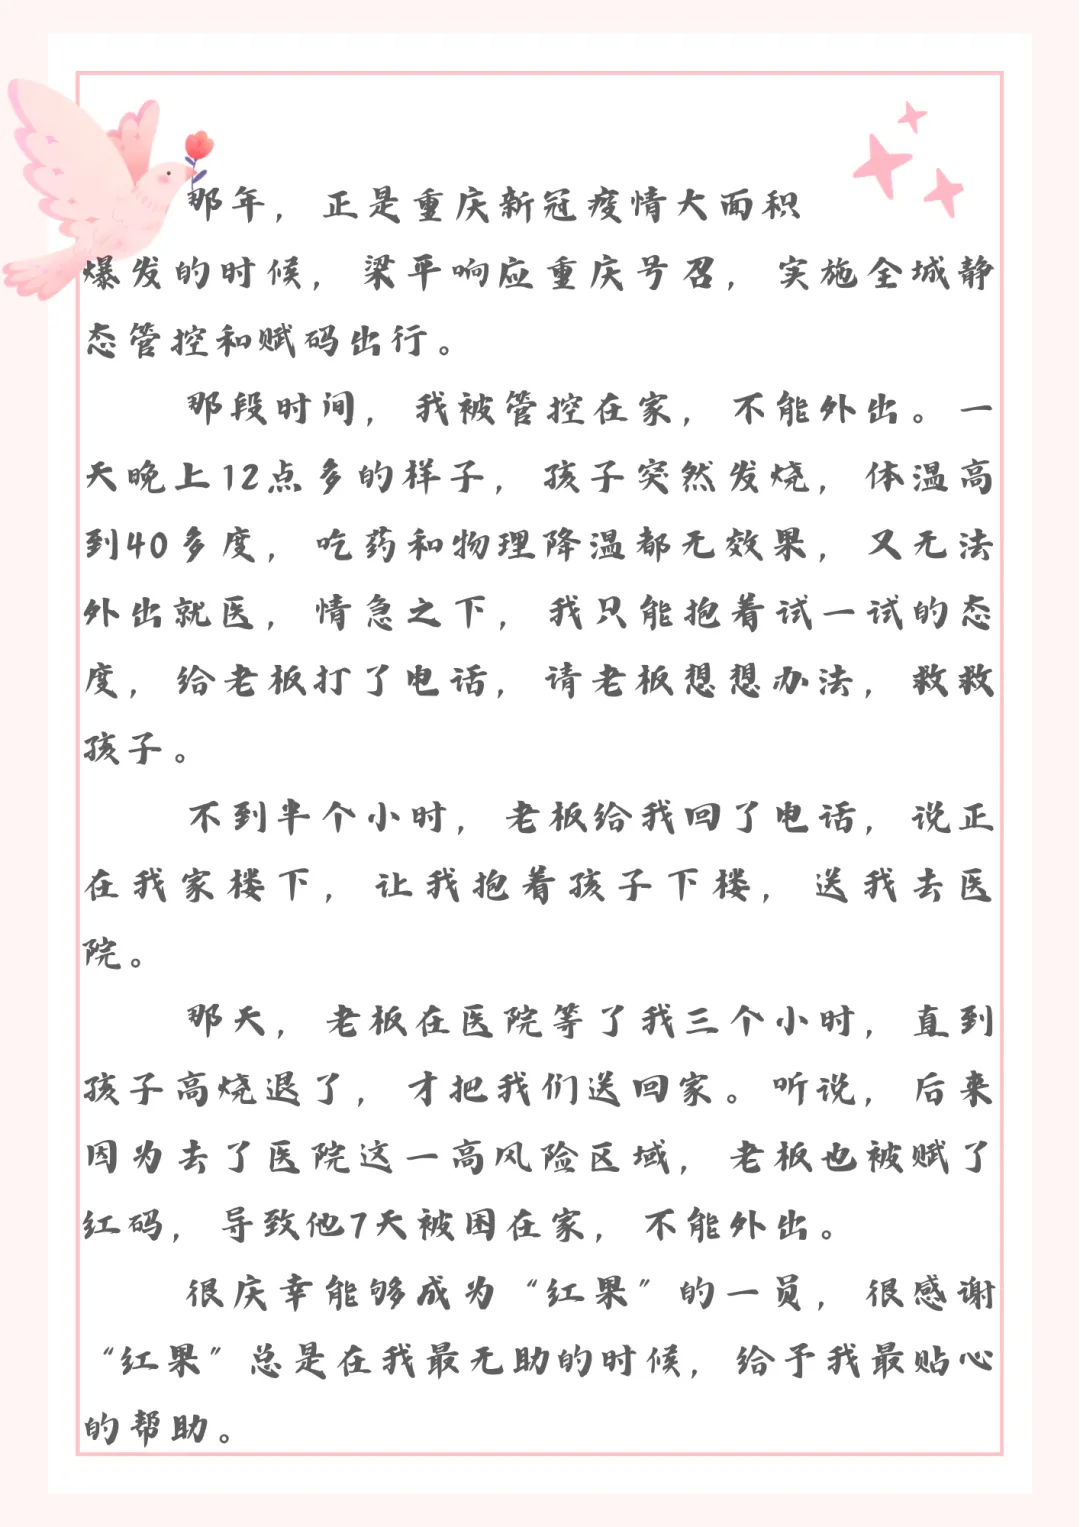 那年，正是重庆新冠疫情大面积
爆发的时候，梁平响应重庆号召，实施全城静
态管控和赋码出行。
那段时间，我被管控在家，不能外出。一
天晚上12点多的样子，孩子突然发烧，体温高
到40多度，吃药和物理降温都无效果，又无法
外出就医，情急之下，我只能抱着试一试的态
度，给老板打了电话，请老板想想办法，救救
孩子。
不到半个小时，老板给我回了电话，说正
在我家楼下，让我抱着孩子下楼，送我去医
院。
那天，老板在医院等了我三个小时，直到
孩子高烧退了，才把我们送回家。听说，后来
因为去了医院这一高风险区域，老板也被赋了
红码，导致他7天被困在家，不能外出。
很庆幸能够成为“红果”的一员，很感谢
“红果”总是在我最无助的时候，给予我最贴心
的帮助。